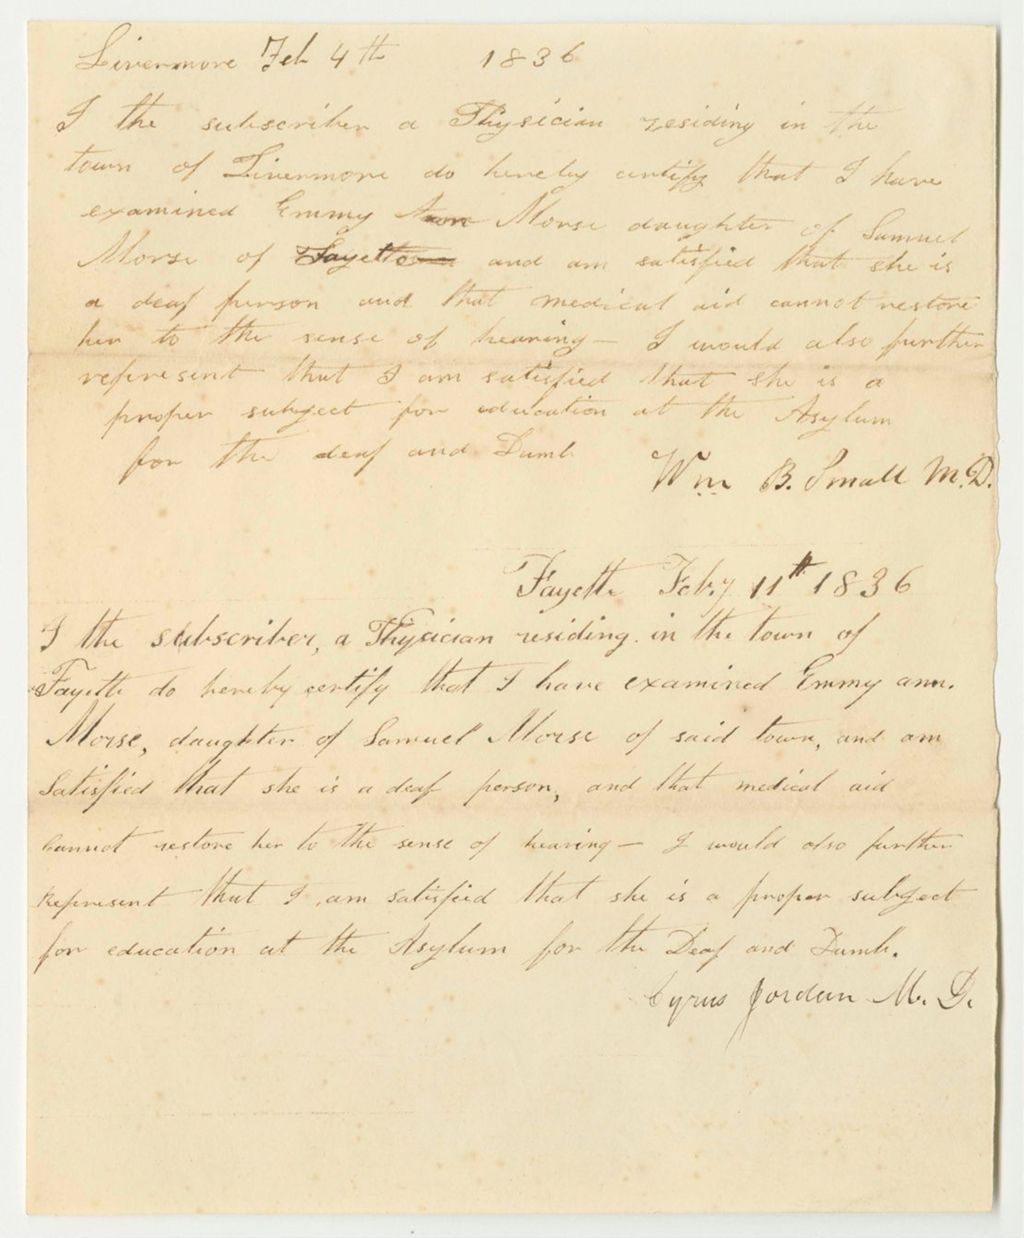 Livermore Feb 4th 1836
I the subscriber a Physician residing in the
town of Livermore do hereby certify that I have
examined Emmy Ann Morse daughter of Samuel
Morse of Fayette and am satisfied that she is
a deaf person and that medical aid cannot restore
her to the sense of hearing— I would also further
represent that I am satisfied that she is a
proper subject for education at the Asylum
for the deaf and Dumb
Wm B. Small M.D.
Fayette Feby 11th 1836
I the subscriber, a Physician residing in the town of
Fayette do hereby certify that I have examined Emmy ann.
Morse, daughter of Samuel Morse of said town, and am
Satisfied that she is a deaf person, and that medical aid
Cannot restore her to the sense of hearing— I would also further
Represent that I am satisfied that she is a proper subject
for education at the Asylum for the Deaf and Dumb.
Cyrus Jordan M. D.